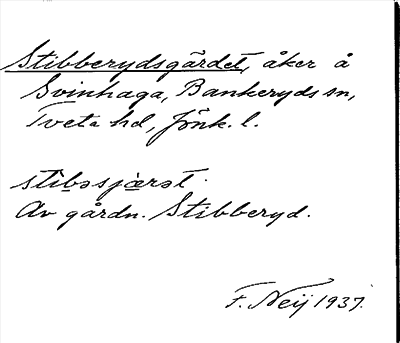 Stibberydsgärdet, åker å
Svinhaga, Bankeryds sn,
Tveta hd, Jönk. l.
stibəsjærət.
Av gårdn. Stibberyd.
F. Neij 1937.